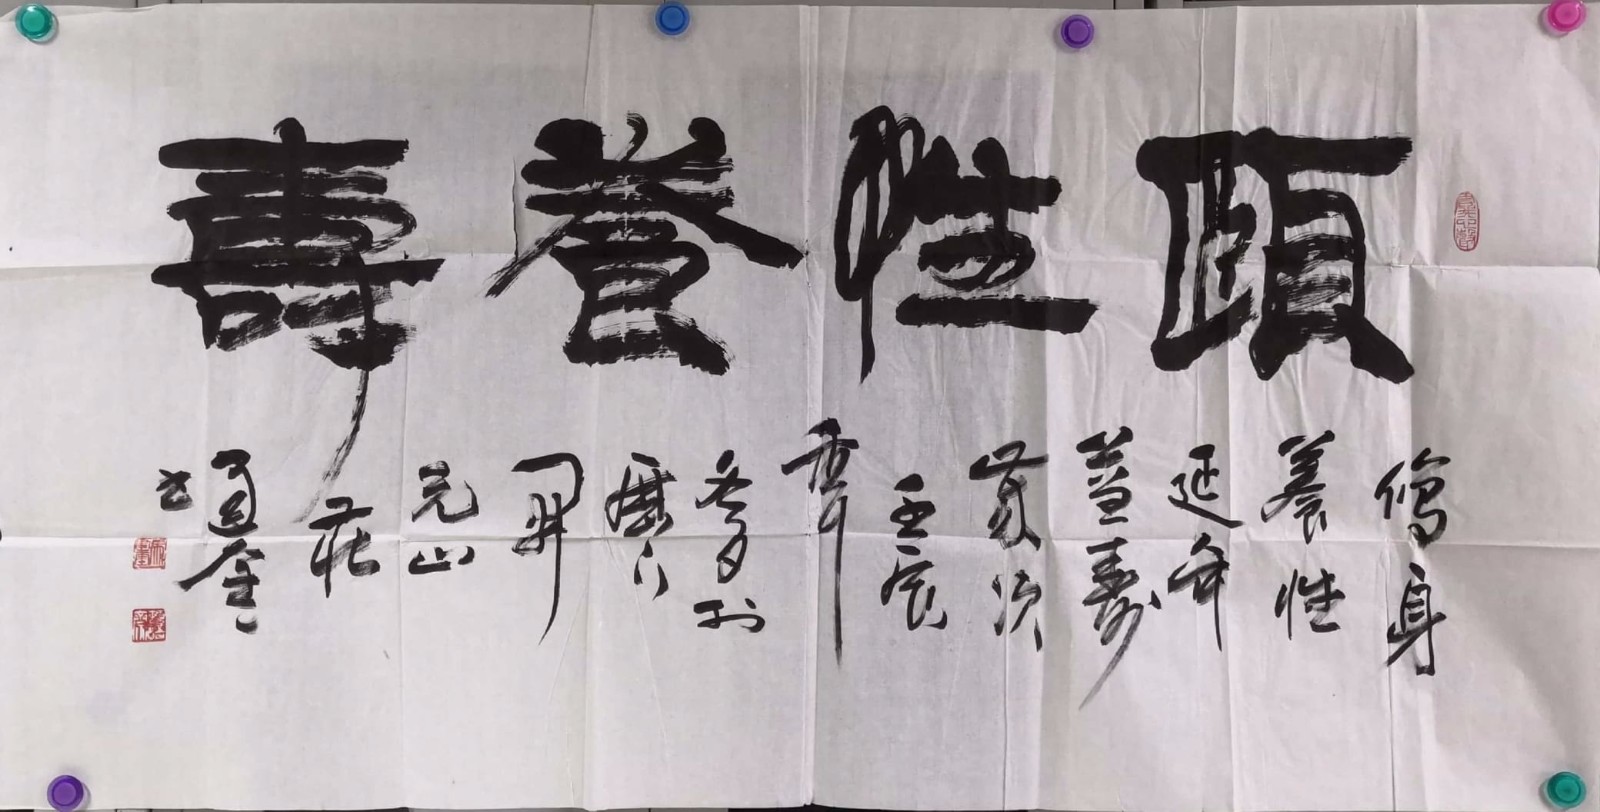 頤性養壽
修身
養性
延年
益壽
歲次
壬辰
年
冬月於
歷下
元山
莊
書